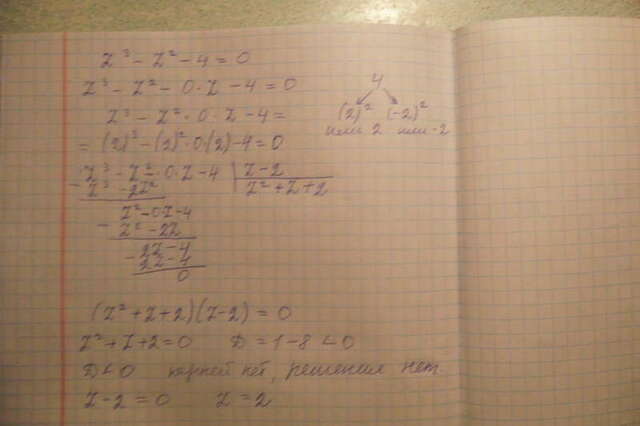 z³ - z² - 4 = 0
z³ - z² - 0·z - 4 = 0
z³ - z² · 0 · z - 4 =
= (2)³ - (2)² · 0 · (2) - 4 = 0
4
(2)² (-2)²
или 2 или -2
z³ - z² - 0·z - 4 | z - 2
- z³ - 2z² | z² + z + 2
z² - 0z - 4
- z² - 2z
2z - 4
- 2z - 4
0
(z² + z + 2)(z - 2) = 0
z² + z + 2 = 0 D = 1 - 8 < 0
D < 0 корней нет, решения нет.
z - 2 = 0 z = 2